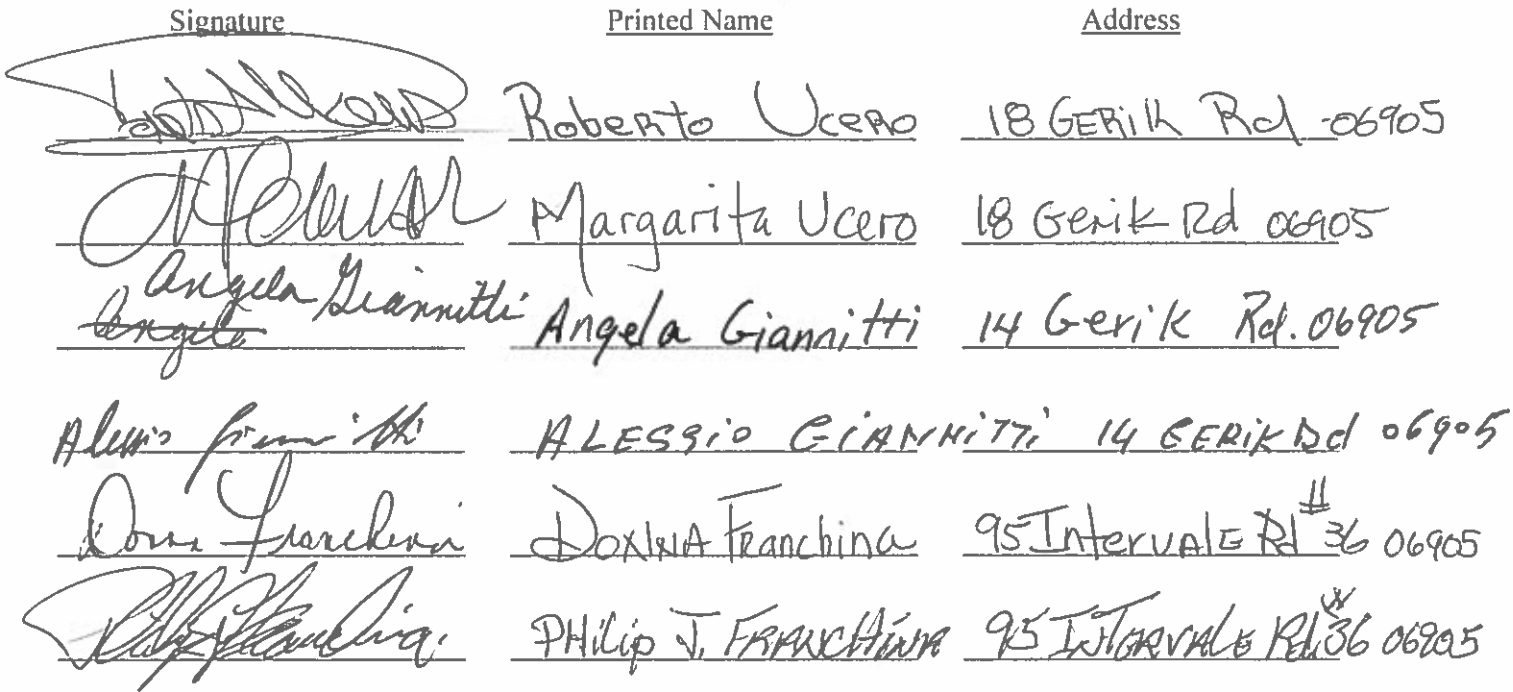 Signature Printed Name Address
Roberto Ucero 18 GERik Rd 06905
Margarita Ucero 18 Gerik Rd 06905
Angela Giannitti Angela Giannitti 14 Gerik Rd. 06905
Angela
Alessio Giannitti ALESSIO GIANNITTI 14 GERIK Rd 06905
Donna Franchina DONNA Franchina 95 IntervalE Rd #36 06905
Philip J Franchina PHilip J. FRANCHINA 95 INTERVALE Rd. #36 06905